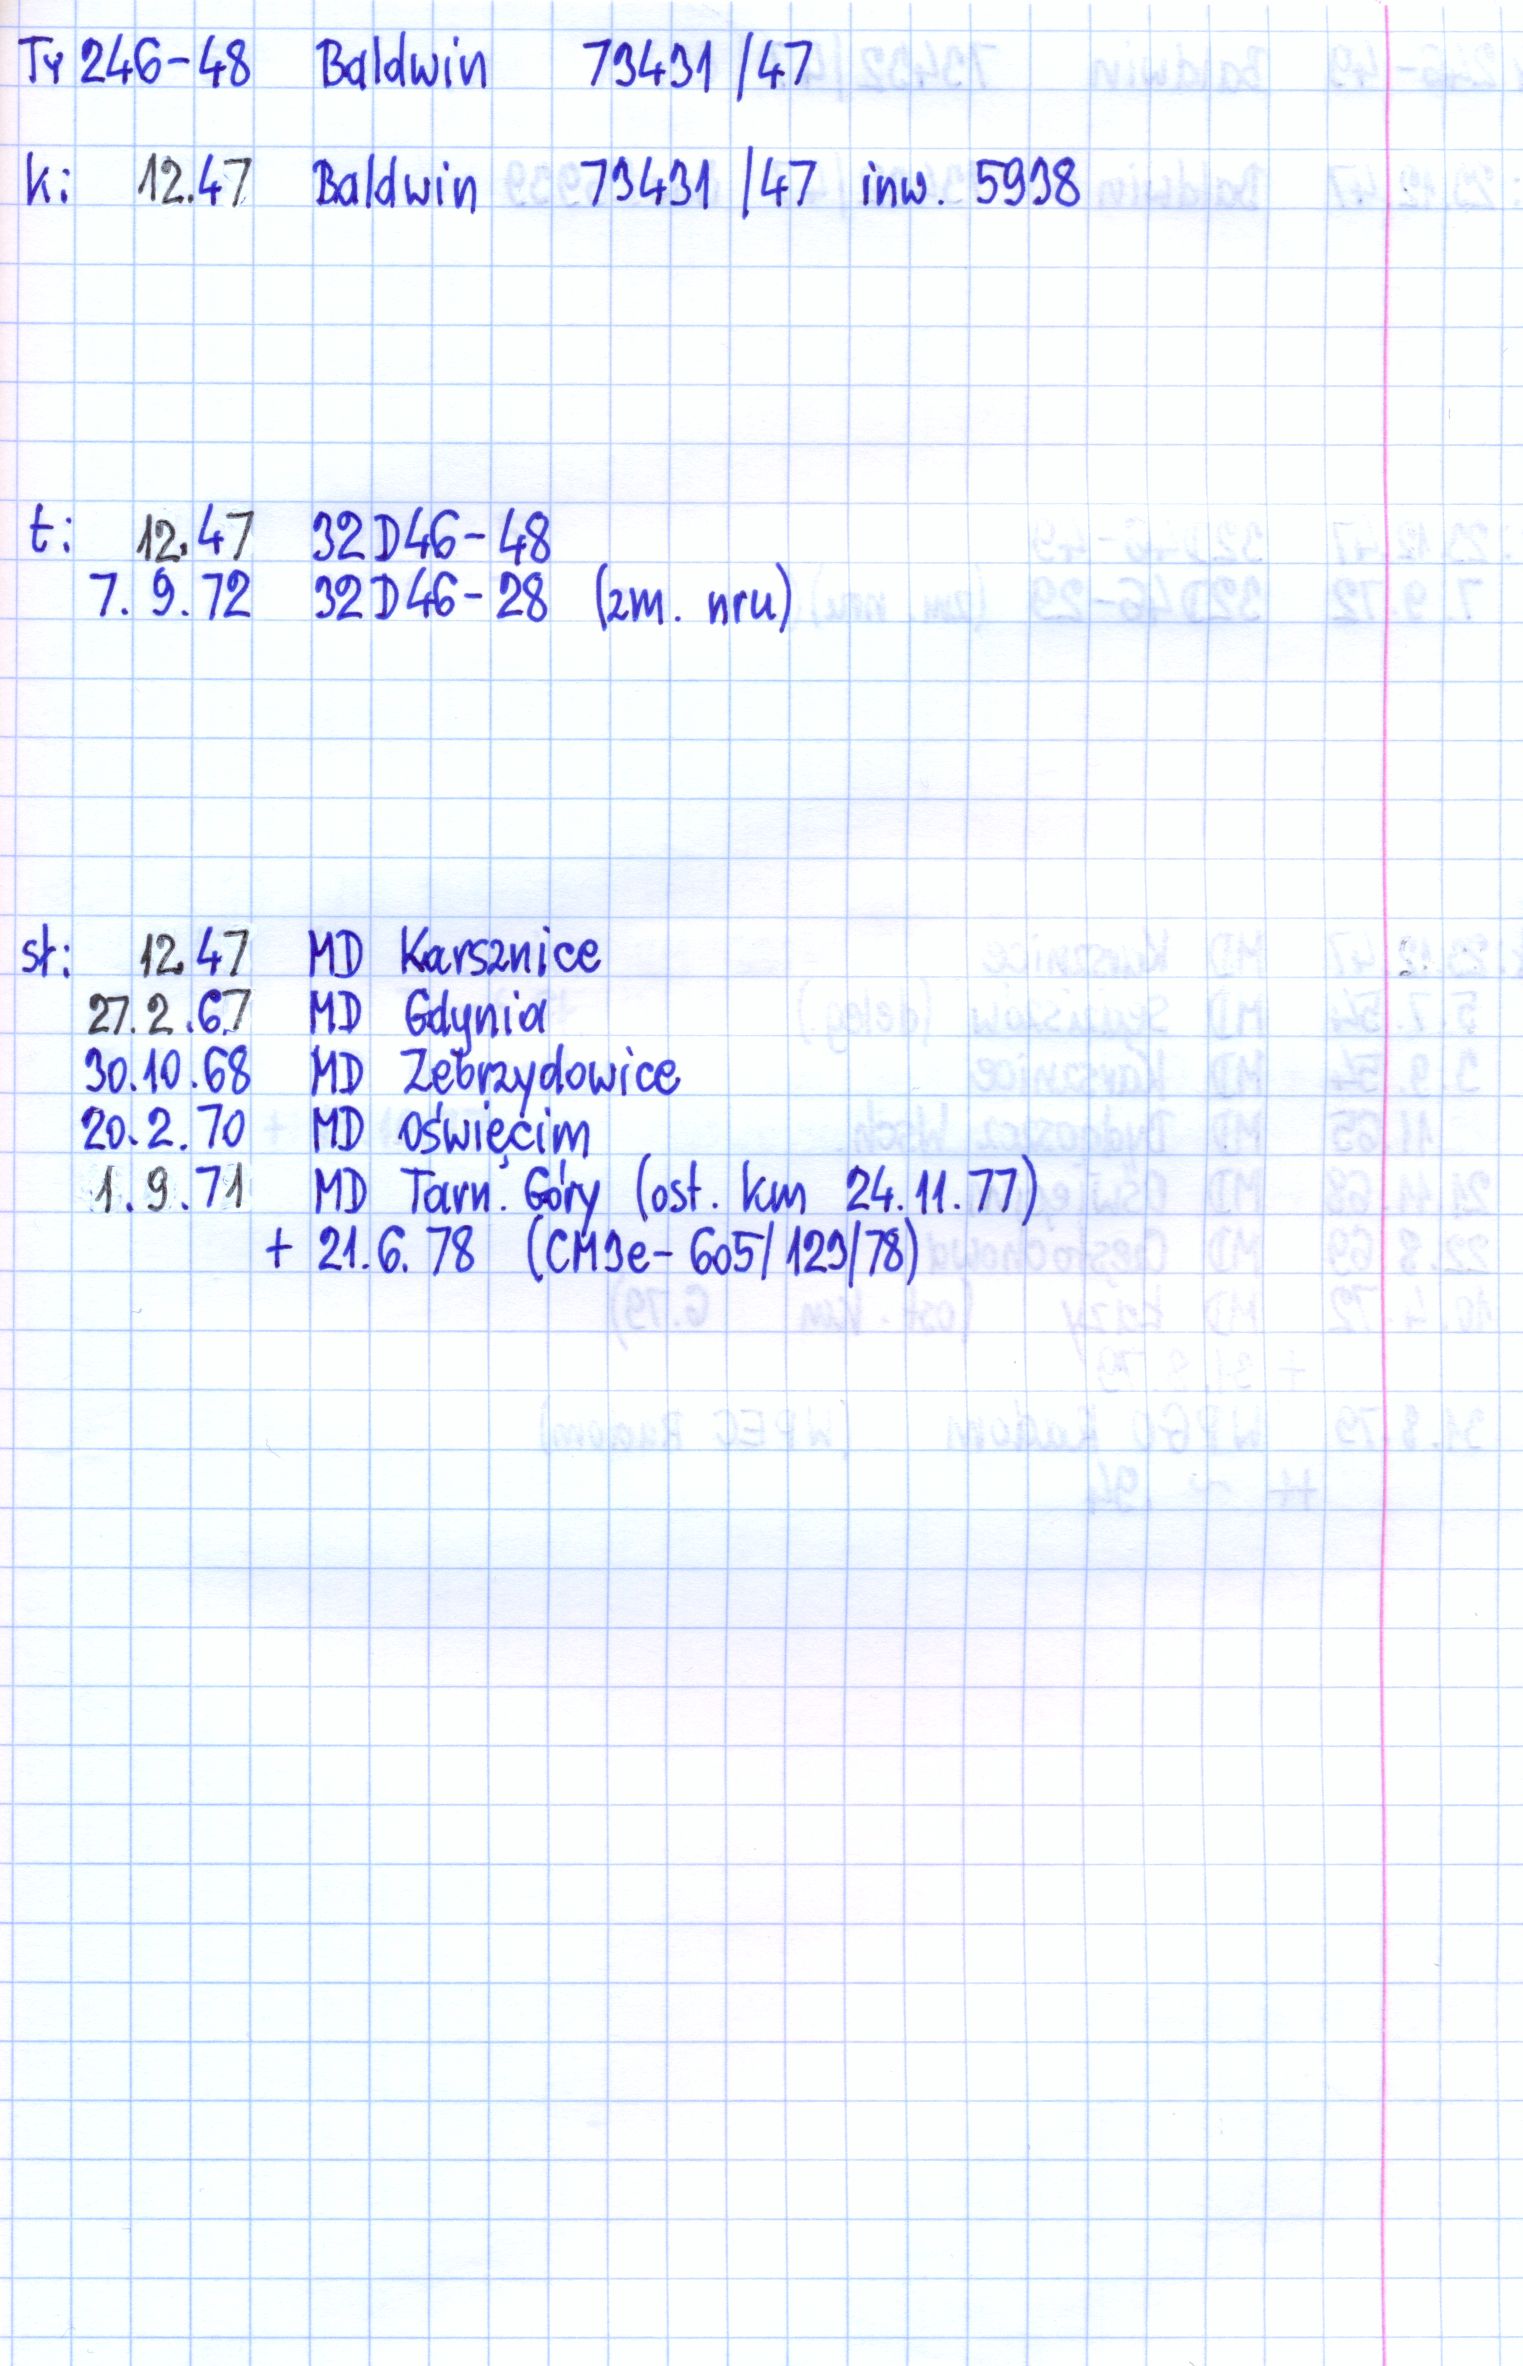 Ty 246-48 Baldwin 73431/47
k: 12.47 Baldwin 73431/47 inw. 5938
t: 12.47 32D46-48
7.9.72 32D46-28 (zm. nru)
st: 12.47 MD Karsznice
27.2.67 MD Gdynia
30.10.68 MD Zebrzydowice
20.2.70 MD Oświęcim
1.9.71 MD Tarn. Góry (ost. km 24.11.77)
+ 21.6.78 (CM3e-605/123/78)